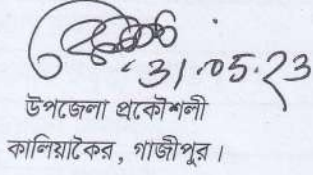 31.05.23
উপজেলা প্রকৌশলী
কালিয়াকৈর, গাজীপুর।